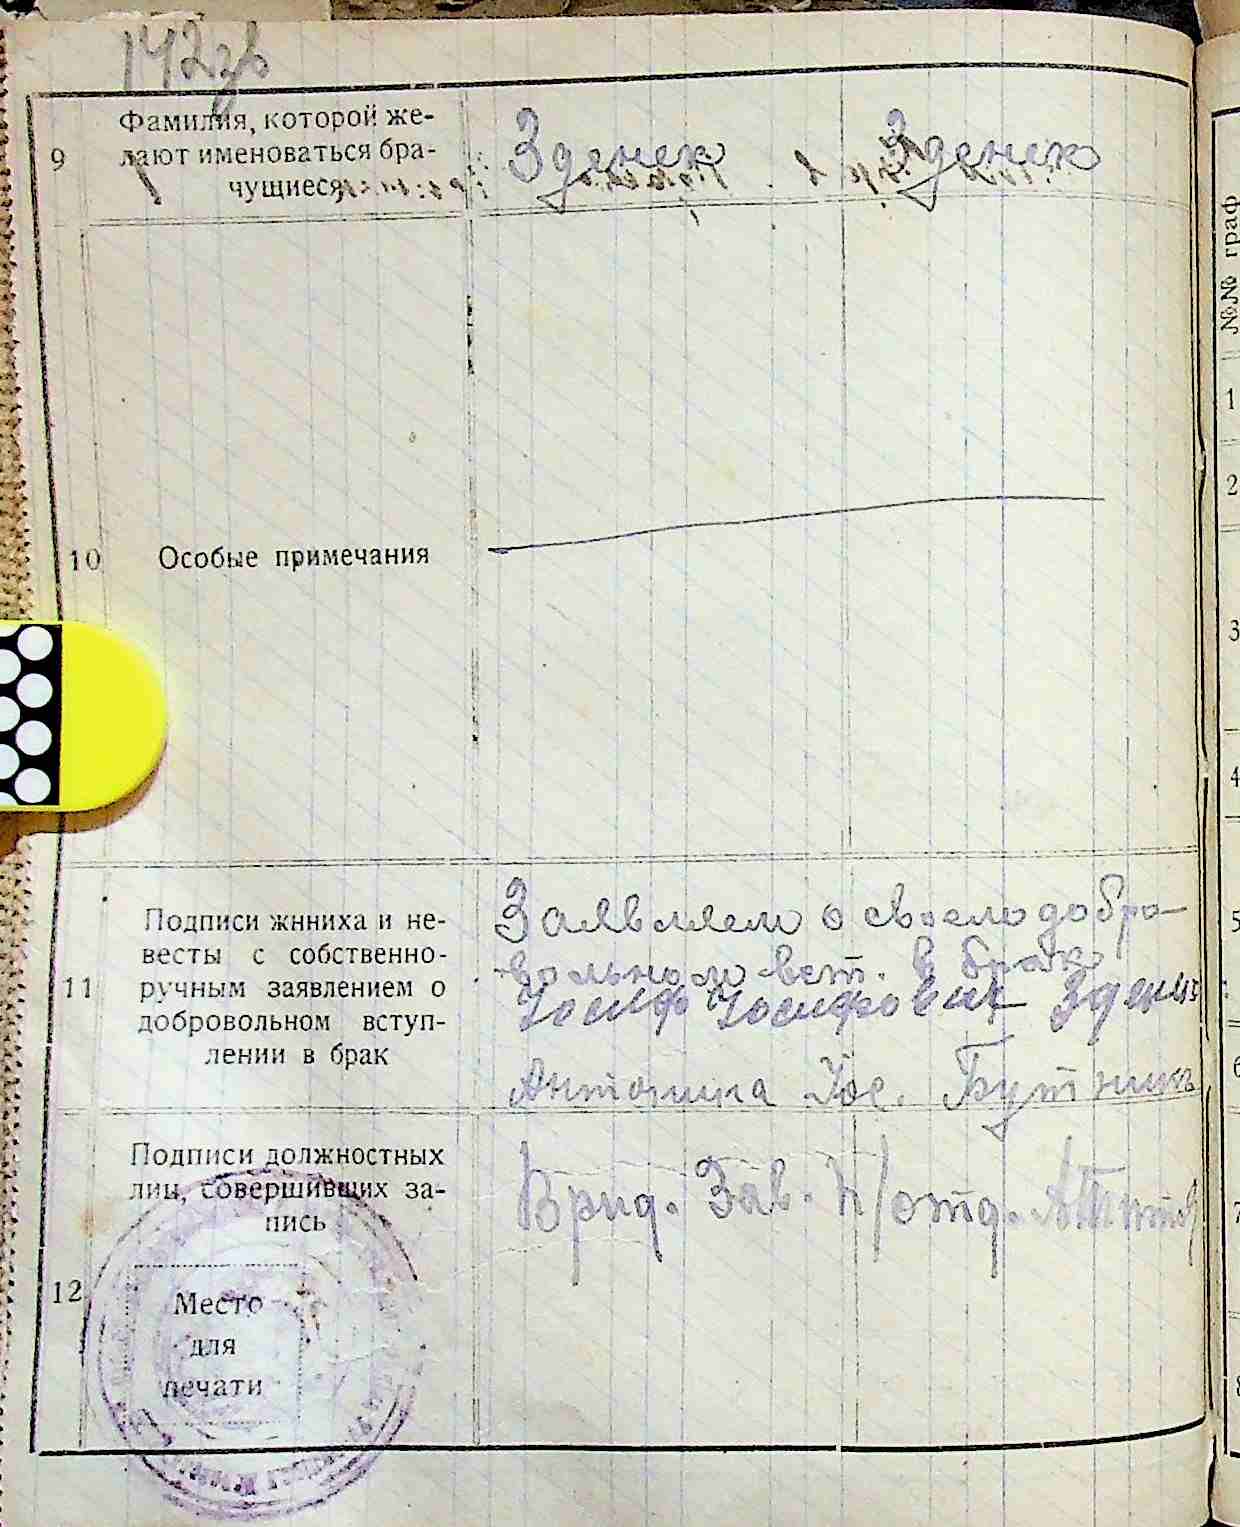 142зв
9 Фамилия, которой же-
лают именоваться бра-
чущиеся
Зденек Зденек
10 Особые примечания
11 Подписи жнниха и не-
весты с собственно-
ручным заявлением о
добровольном вступ-
лении в брак
Заявляем о своем добро-
вольном вст. в брак
Иосиф Иосифович Зденек
Антонина Иос. Бутник
12 Подписи должностных
лиц, совершивших за-
пись
Врид. Зав. К/отд.
Место
для
печати
№№ граф
1
2
3
4
5
6
7
8